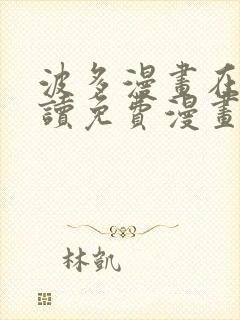 波多漫畫在
讀免費漫畫
林凱